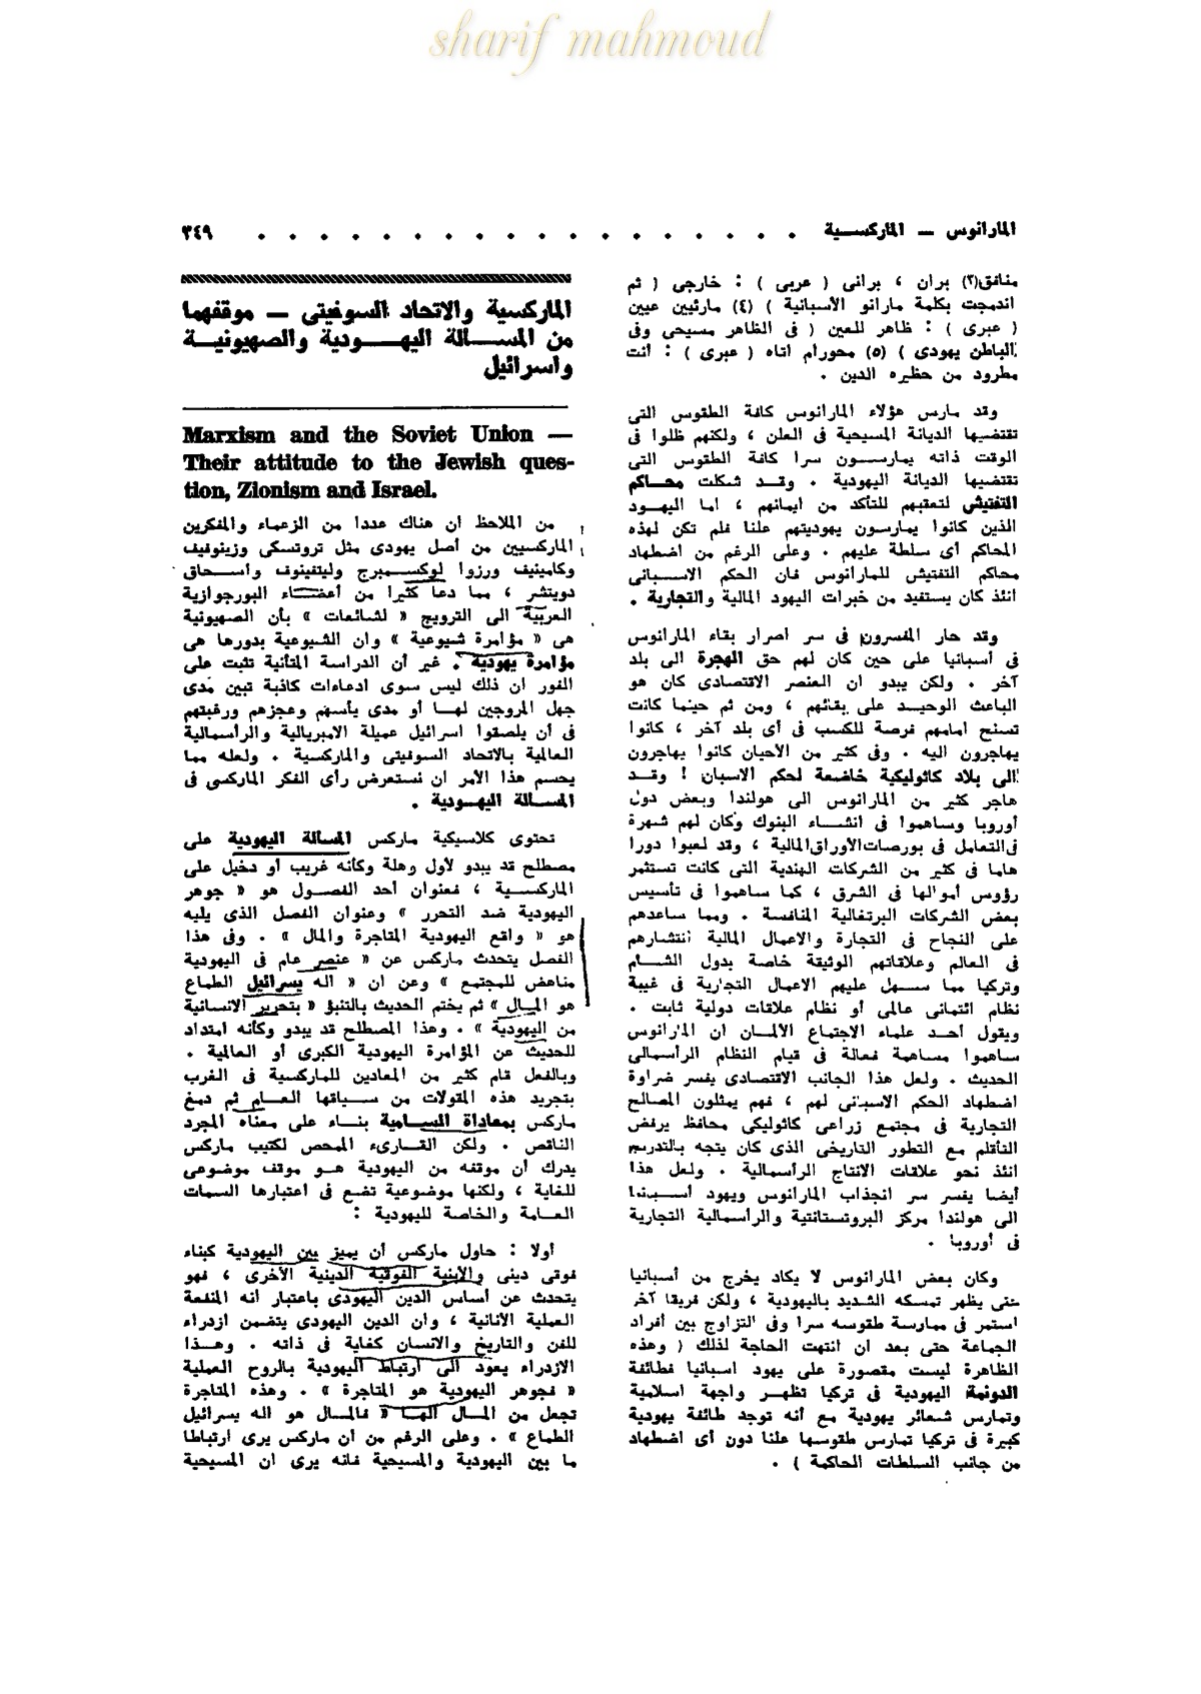 sharif mahmoud
المارانوس — الماركسية . . . . . . . . . . . . . . . . . . ٣٤٩
منافق(٣) بران ، برانى ( عربى ) : خارجى ( ثم
اندمجت بكلمة مارانو الأسبانية ) (٤) مارئيين عيين
( عبرى ) : ظاهر للعين ( فى الظاهر مسيحى وفى
الباطن يهودى ) (٥) محورام اتاه ( عبرى ) : أنت
مطرود من حظيره الدين .
وقد مارس هؤلاء المارانوس كافة الطقوس التى
تقتضيها الديانة المسيحية فى العلن ، ولكنهم ظلوا فى
الوقت ذاته يمارسون سرا كافة الطقوس التى
تقتضيها الديانة اليهودية . وقد شكلت محاكم
التفتيش لتعقبهم للتأكد من ايمانهم ، اما اليهود
الذين كانوا يمارسون يهوديتهم علنا فلم تكن لهذه
المحاكم أى سلطة عليهم . وعلى الرغم من اضطهاد
محاكم التفتيش للمارانوس فان الحكم الاسبانى
انئذ كان يستفيد من خبرات اليهود المالية والتجارية .
وقد حار المفسرون فى سر اصرار بقاء المارانوس
فى أسبانيا على حين كان لهم حق الهجرة الى بلد
آخر . ولكن يبدو ان العنصر الاقتصادى كان هو
الباعث الوحيد على بقائهم ، ومن ثم حينما كانت
تسنح امامهم فرصة للكسب فى أى بلد آخر ، كانوا
يهاجرون اليه . وفى كثير من الأحيان كانوا يهاجرون
الى بلاد كاثوليكية خاضعة لحكم الاسبان ! وقد
هاجر كثير من المارانوس الى هولندا وبعض دول
أوروبا وساهموا فى انشاء البنوك وكان لهم شهرة
فى التعامل فى بورصات الأوراق المالية ، وقد لعبوا دورا
هاما فى كثير من الشركات الهندية التى كانت تستثمر
رؤوس أموالها فى الشرق ، كما ساهموا فى تأسيس
بعض الشركات البرتغالية المنافسة . ومما ساعدهم
على النجاح فى التجارة والاعمال المالية انتشارهم
فى العالم وعلاقاتهم الوثيقة خاصة بدول الشام
وتركيا مما سهل عليهم الاعمال التجارية فى غيبة
نظام ائتمانى عالمى أو نظام علاقات دولية ثابت .
ويقول أحد علماء الاجتماع الألمان ان المارانوس
ساهموا مساهمة فعالة فى قيام النظام الرأسمالى
الحديث . ولعل هذا الجانب الاقتصادى يفسر ضراوة
اضطهاد الحكم الاسبانى لهم ، فهم يمثلون المصالح
التجارية فى مجتمع زراعى كاثوليكى محافظ يرفض
التأقلم مع التطور التاريخى الذى كان يتجه بالتدريج
انئذ نحو علاقات الانتاج الرأسمالية . ولعل هذا
أيضا يفسر سر انجذاب المارانوس ويهود أسبانيا
الى هولندا مركز البروتستانتية والرأسمالية التجارية
فى أوروبا .
وكان بعض المارانوس لا يكاد يخرج من أسبانيا
حتى يظهر تمسكه الشديد باليهودية ، ولكن فريقا آخر
استمر فى ممارسة طقوسه سرا وفى التزاوج بين أفراد
الجماعة حتى بعد ان انتهت الحاجة لذلك ( وهذه
الظاهرة ليست مقصورة على يهود اسبانيا فطائفة
الدونمة اليهودية فى تركيا تظهر واجهة اسلامية
وتمارس شعائر يهودية مع أنه توجد طائفة يهودية
كبيرة فى تركيا تمارس طقوسها علنا دون أى اضطهاد
من جانب السلطات الحاكمة ) .
الماركسية والاتحاد السوفيتى — موقفهما
من المسالة اليهودية والصهيونية
واسرائيل
Marxism and the Soviet Union —
Their attitude to the Jewish ques-
tion, Zionism and Israel.
من الملاحظ ان هناك عددا من الزعماء والمفكرين
الماركسيين من أصل يهودى مثل تروتسكى وزينوفيف
وكامينيف ورزوا لوكسمبرج وليتفينوف واسحاق
دويتشر ، مما دعا كثيرا من أعضاء البورجوازية
العربية الى الترويج « لشائعات » بأن الصهيونية
هى « مؤامرة شيوعية » وان الشيوعية بدورها هى
مؤامرة يهودية . غير أن الدراسة المتأنية تثبت على
الفور ان ذلك ليس سوى ادعاءات كاذبة تبين مدى
جهل المروجين لها أو مدى يأسهم وعجزهم ورغبتهم
فى أن يلصقوا اسرائيل عميلة الامبريالية والرأسمالية
العالمية بالاتحاد السوفيتى والماركسية . ولعله مما
يحسم هذا الأمر ان نستعرض رأى الفكر الماركسى فى
المسالة اليهودية .
تحتوى كلاسيكية ماركس المسالة اليهودية على
مصطلح قد يبدو لأول وهلة وكأنه غريب أو دخيل على
الماركسية ، فعنوان أحد الفصول هو « جوهر
اليهودية ضد التحرر » وعنوان الفصل الذى يليه
هو « واقع اليهودية المتاجرة والمال » . وفى هذا
الفصل يتحدث ماركس عن « عنصر عام فى اليهودية
مناهض للمجتمع » وعن ان « اله يسرائيل الطماع
هو المال » ثم يختم الحديث بالتنبؤ « بتحرير الانسانية
من اليهودية » . وهذا المصطلح قد يبدو وكأنه امتداد
للحديث عن المؤامرة اليهودية الكبرى أو العالمية .
وبالفعل قام كثير من المعادين للماركسية فى الغرب
بتجريد هذه المقولات من سياقها العام ثم دمغ
ماركس بمعاداة السامية بناء على معناه المجرد
الناقص . ولكن القارىء المحص لكتيب ماركس
يدرك أن موقفه من اليهودية هو موقف موضوعى
للغاية ، ولكنها موضوعية تضع فى اعتبارها السمات
العامة والخاصة لليهودية :
أولا : حاول ماركس أن يميز بين اليهودية كبناء
فوقى دينى والأبنية الفوقية الدينية الأخرى ، فهو
يتحدث عن أساس الدين اليهودى باعتبار انه المنفعة
العملية الأنانية ، وان الدين اليهودى يتضمن ازدراء
للفن والتاريخ والانسان كغاية فى ذاته . وهذا
الازدراء يعود الى ارتباط اليهودية بالروح العملية
« فجوهر اليهودية هو المتاجرة » . وهذه المتاجرة
تجعل من المال الها « فالمال هو اله يسرائيل
الطماع » . وعلى الرغم من أن ماركس يرى ارتباطا
ما بين اليهودية والمسيحية فانه يرى ان المسيحية